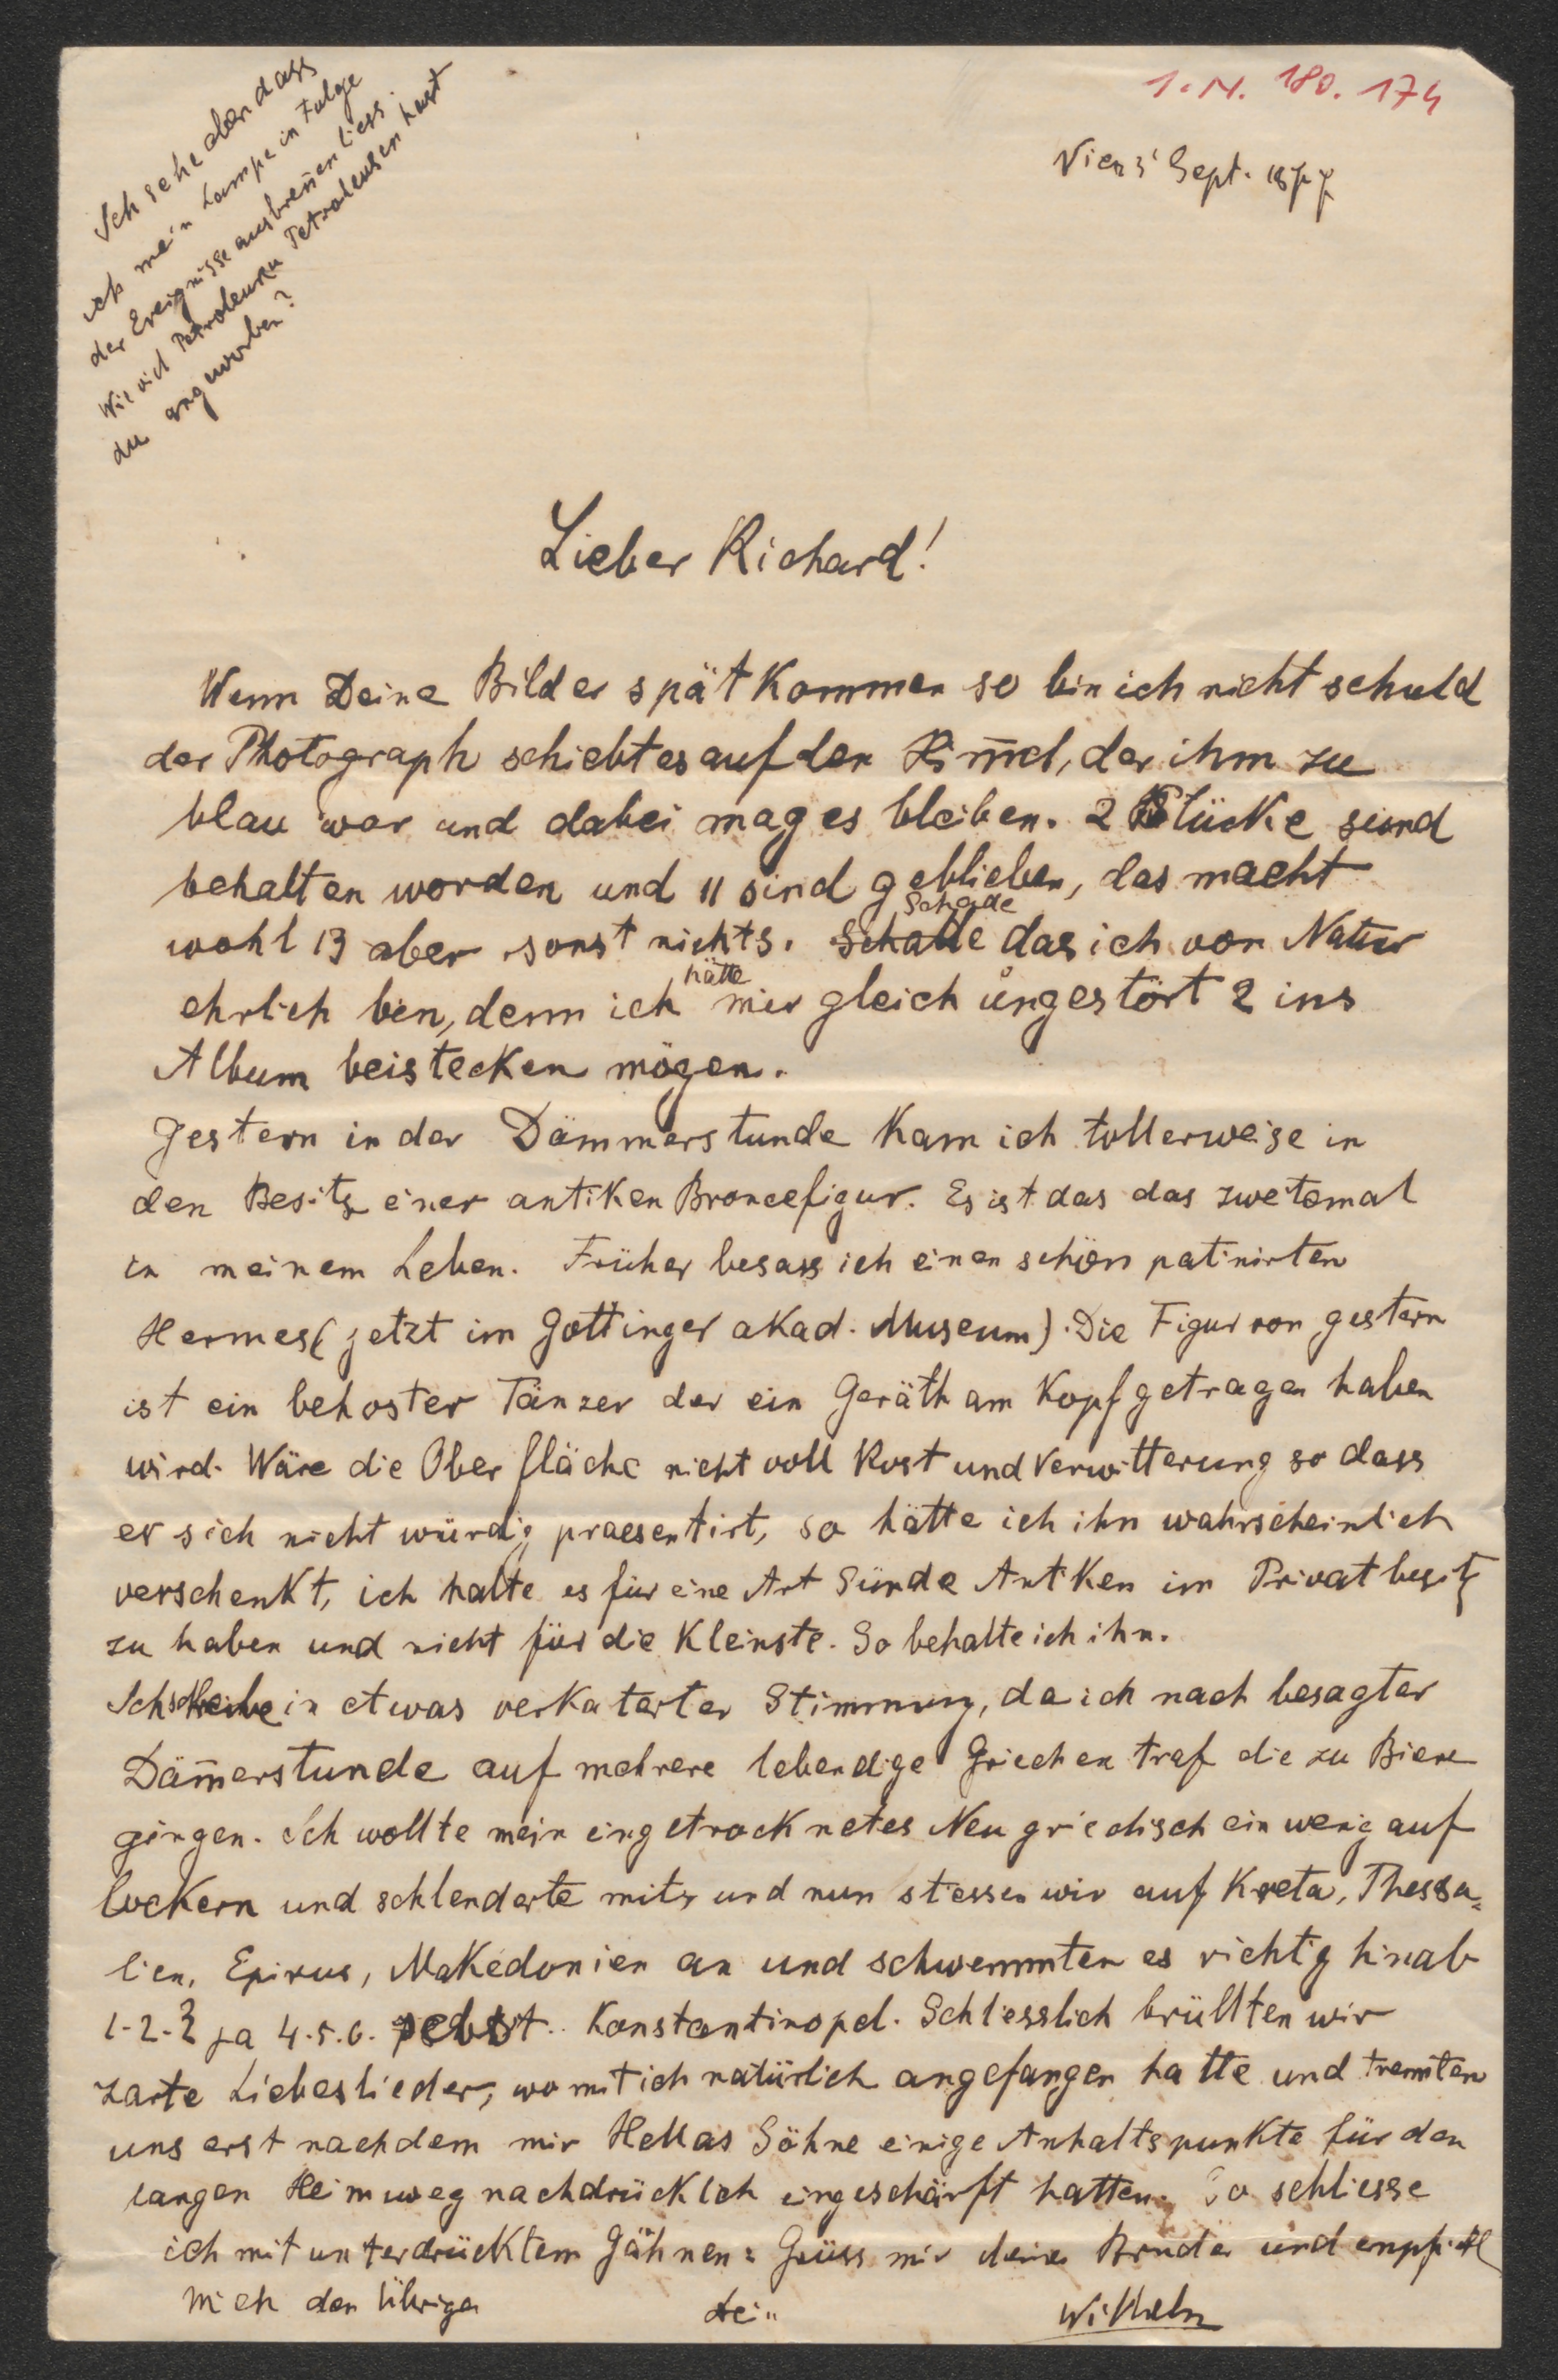 I. N. 180.174
Wien 3 Sept. 1877
Ich sehe eben dass
ich mein Lampe in Folge
der Ereignisse ausbren̄en liess.
Wie viel Petroleum Petroleusen hast
du angeworben?
Lieber Richard!
Wenn Deine Bilder spät kommen so bin ich nicht schuld
der Photograph schiebt es auf den Him̄el, der ihm zu
blau war und dabei mag es bleiben. 2 Stücke sind
behalten worden und 11 sind geblieben, das macht
wohl 13 aber sonst nichts. Schade das ich von Natur
ehrlich bin, denn ich hätte mir gleich ungestört 2 ins
Album beistecken mögen.
Gestern in der Dämmerstunde kam ich tollerweise in
den Besitz einer antiken Broncefigur. Es ist das das zweitemal
in meinem Leben. Früher besass ich einen schön patinirten
Hermes (jetzt im Gottinger akad. Museum). Die Figur von gestern
ist ein behoster Tänzer der ein Geräth am Kopf getragen haben
wird. Wäre die Oberfläche nicht voll Rost und Verwitterung so dass
er sich nicht würdig praesentirt, so hätte ich ihn wahrscheinlich
verschenkt, ich halte es für eine Art Sünde Antiken im Privatbesitz
zu haben und nicht für die Kleinste. So behalte ich ihn.
Ich schreibe in etwas verkaterter Stimmung, da ich nach besagter
Däm̄erstunde auf mehrere lebendige Griechen traf die zu Biere
gingen. Ich wollte mein eingetrocknetes Neugriechisch ein wenig auf
lockern und schlenderte mit, und nun stiessen wir auf Kreta, Thessa=
lien, Epirus, Makedonien an und schwemmten es richtig hinab
1-2-3 ja 4.5.6. selbst.. Konstantinopel. Schliesslich brüllten wir
zarte Liebeslieder, womit ich natürlich angefangen hatte und trennten
uns erst nachdem mir Hellas Söhne einige Anhaltspunkte für den
langen Heimweg nachdrücklich eingeschärft hatten. So schliesse
ich mit unterdrücktem Gähnen: Grüss mir deine Bruder und empfiehl
mich den Übrigen
dein
Wilhelm